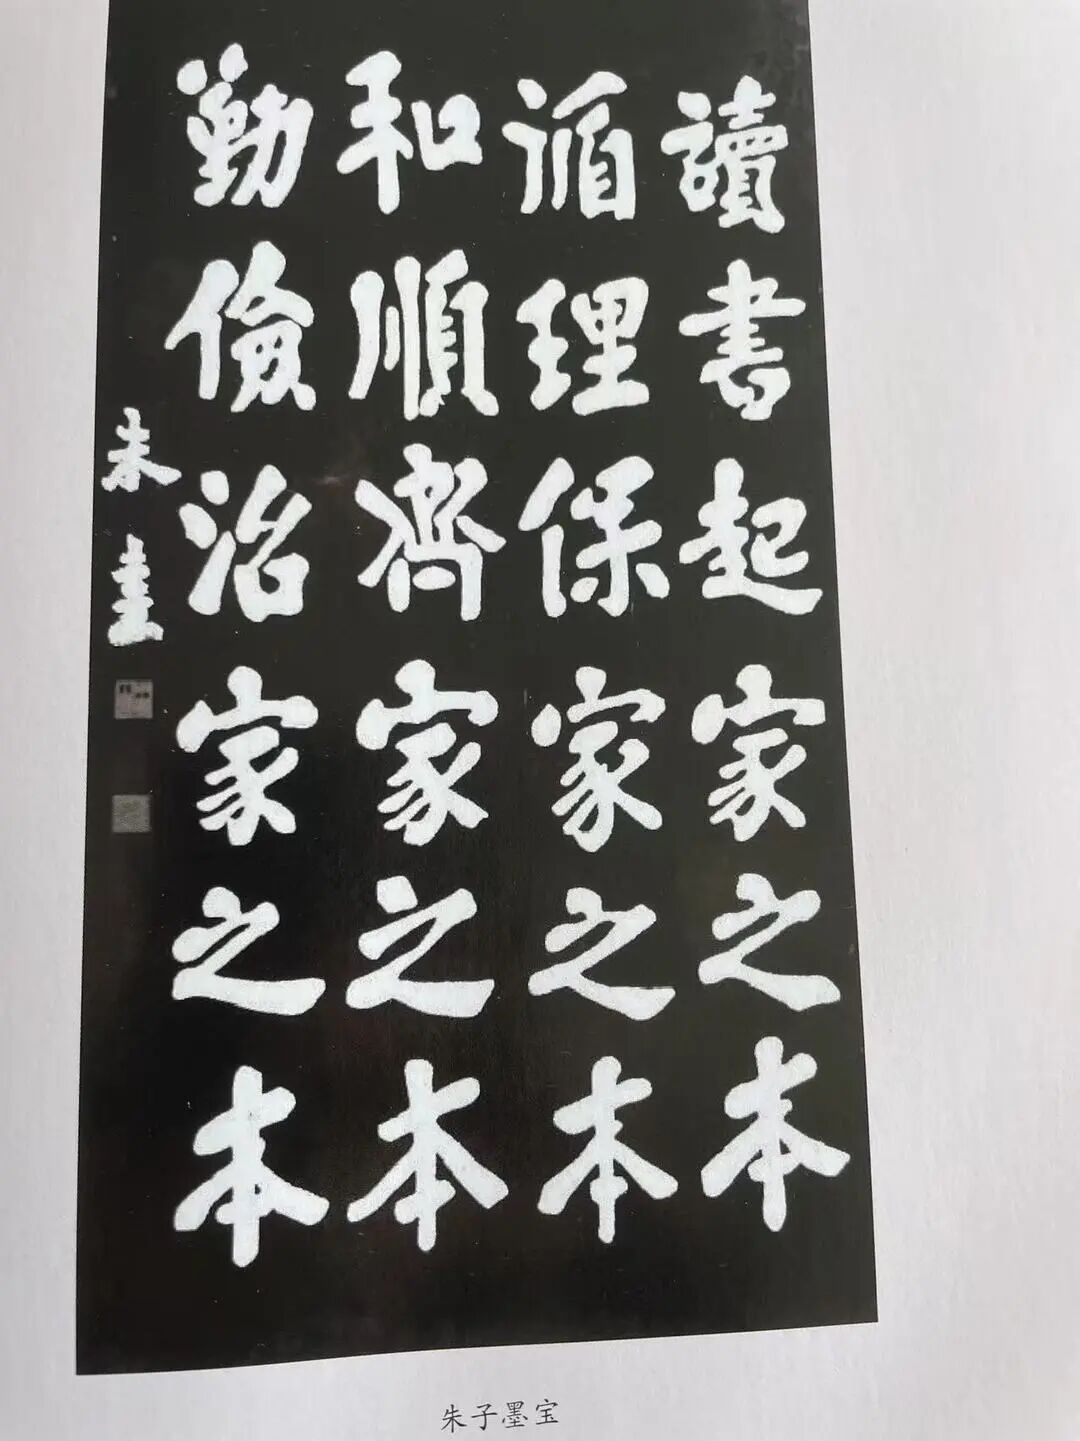 讀書起家之本
循理保家之本
和順齊家之本
勤儉治家之本
朱熹
朱子墨宝